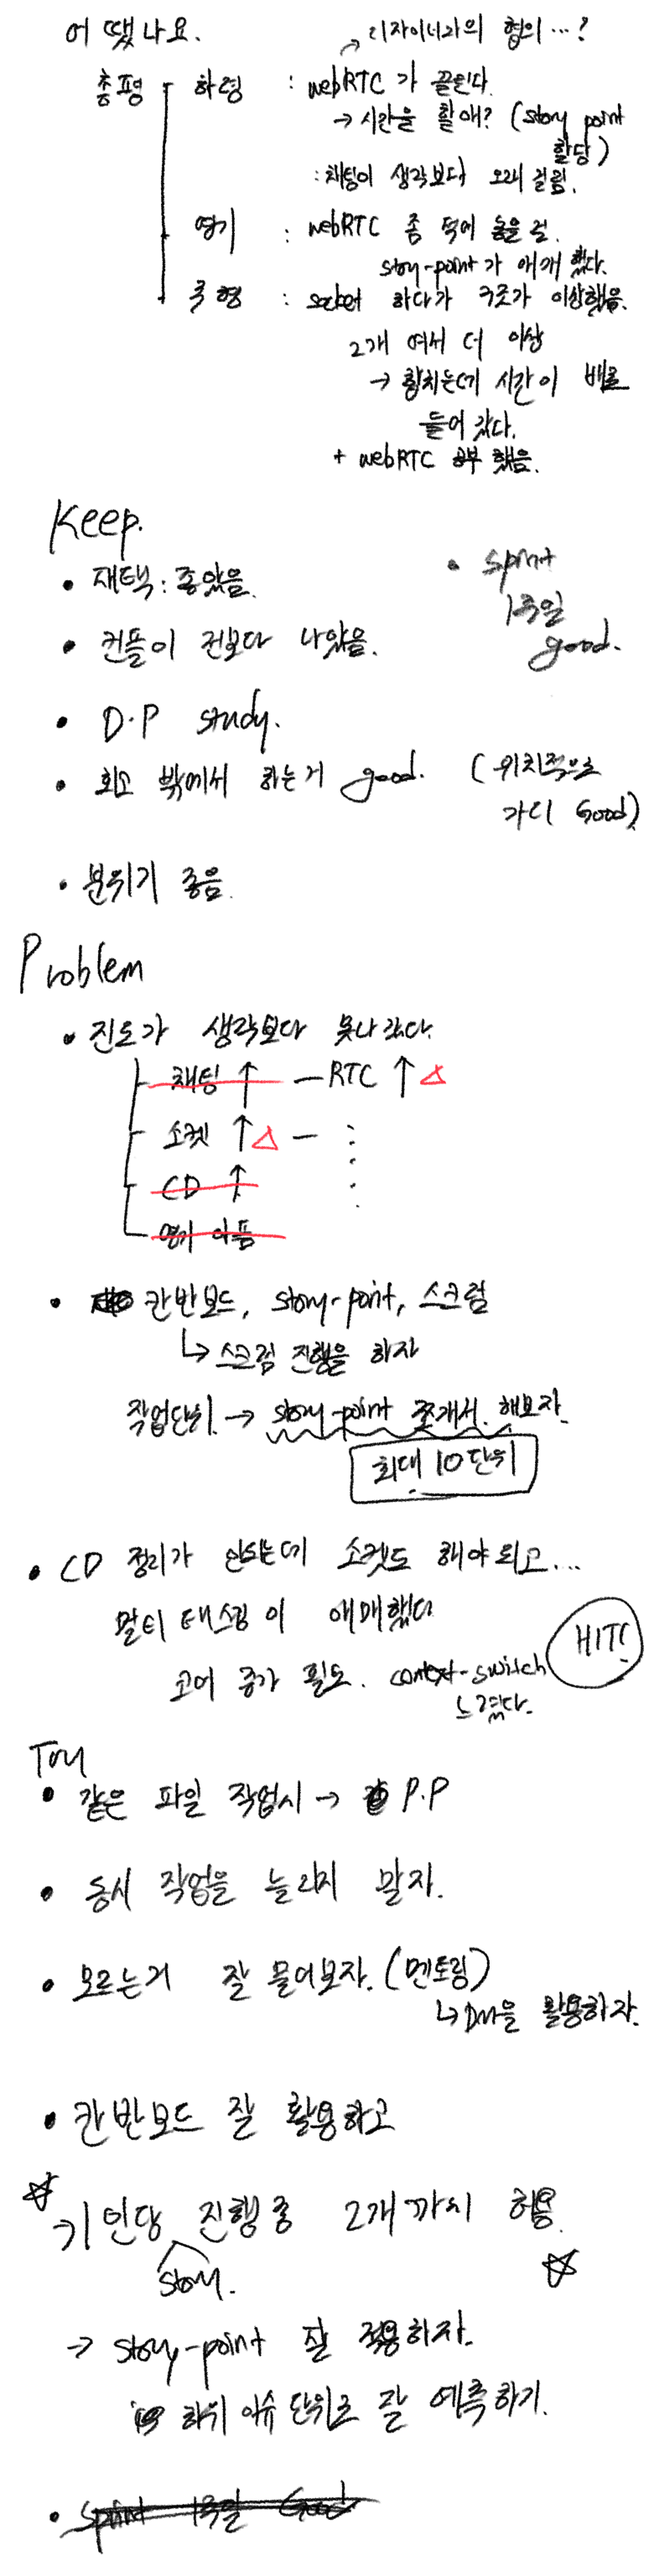 어 땠나요.
디자이너과의 협의...?
총평 하령 : webRTC 가 끌린다.
→ 시간을 할애? (story point 할당)
: 채팅이 생각보다 오래 걸림.
영기 : webRTC 좀 덕에 놓을 걸.
story-point가 애매 했다.
주형 : socket 하다가 구조가 이상했음.
2개 여서 더 이상
→ 합치는데 시간이 배로
들어 갔다.
+ webRTC 공부 했음.
Keep.
• 재택 : 좋았음.
• sprint
1주일
good.
• 컨플이 전보다 나았음.
• D.P study.
• 회고 밖에서 하는거 good. (위치적으로
가디 Good)
• 분위기 좋음.
Problem
• 진도가 생각보다 못나갔다.
채팅 ↑ — RTC ↑ △
소켓 ↑ △ —
CD ↑
영기 아픔
• 칸반보드, story-point, 스크럼
↳ 스크럼 진행을 하자
작업단위 → story-point 쪼개서 해보자.
최대 10단위
• CD 정리가 안되는데 소켓도 해야되고...
멀티 태스킹 이 애매했다
HIT!
코어 증가 필요. context-switch
느렸다.
Try
• 같은 파일 작업시 → P.P
• 동시 작업을 늘리지 말자.
• 모르는거 잘 물어보자. (멘토링)
↳ DM을 활용하자.
• 칸반보드 잘 활용하고
☆ → 1인당 진행중 2개 까지 허용. ☆
story.
→ story-point 잘 적용하자.
하위 이슈 단위로 잘 예측하기.
• Sprint 1주일 Good